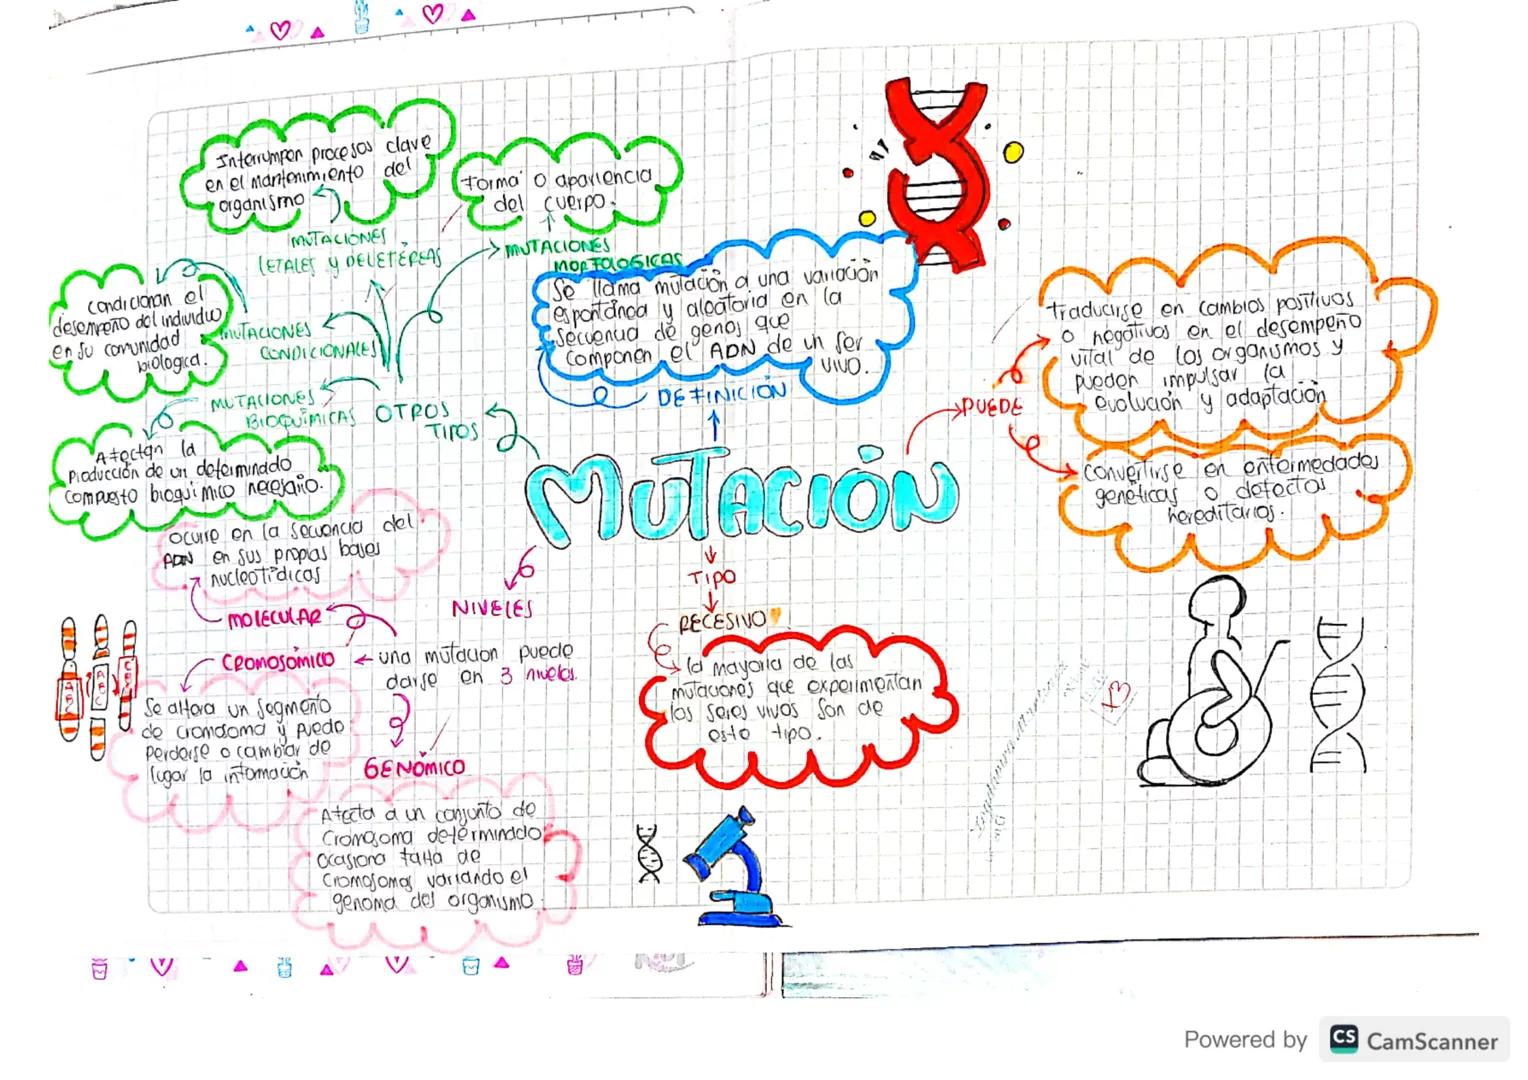 Interrumpen procesos clave
en el mantenimiento del
organismo
MUTACIONES
LETALES y DELETÉREAS
Forma o apariencia
del cuerpo.
MUTACIONES
MORFOLOGICAS
Condicionan el
desempeño del individuo
en su comunidad
biologica.
MUTACIONES
CONDICIONALES
MUTACIONES
BIOQUÍMICAS
Afectan la
Producción de un determinado
compuesto bioquímico necesario.
OTROS
TIPOS
Se llama mutación a una variación
espontánea y aleatoria en la
secuencia de genes que
componen el ADN de un ser
vivo.
DEFINICIÓN
MUTACIÓN
PUEDE
Traducirse en cambios positivos
o negativos en el desempeño
vital de los organismos y
pueden impulsar la
evolución y adaptación
Convertirse en enfermedades
genéticas o defectos
hereditarios.
TIPO
RECESIVO
la mayoria de las
mutaciones que experimentan
los seres vivos son de
este tipo.
NIVELES
una mutacion puede
darse en 3 niveles.
MOLECULAR
Ocurre en la secuencia del
ADN en sus propias bases
nucleotídicas
CROMOSÓMICO
Se altera un segmento
de cromosoma y puede
perderse o cambiar de
lugar la información
GENÓMICO
Afecta a un conjunto de
cromosoma determinado
Ocasiona falta de
cromosomas variando el
genoma del organismo.
Powered by CS CamScanner